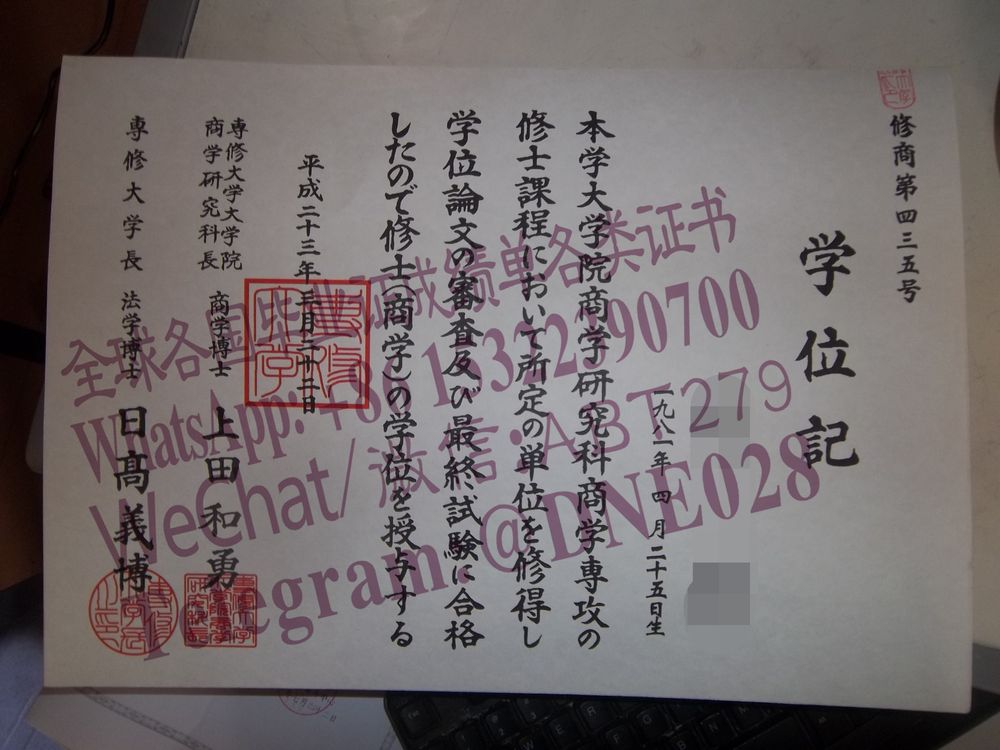 修商第四三五号
学位記
一九八一年四月二十五日生
本学大学院商学研究科商学専攻の
修士課程において所定の単位を修得し
学位論文の審査及び最終試験に合格
したので修士(商学)の学位を授与する
平成二十三年三月二十二日
専修大学大学院
商学研究科長 商学博士 上田和勇
専修大学長 法学博士 日髙義博
全球各国毕业证成绩单各类证书
WhatsApp:+86 15322290700
WeChat/微信:ABT279
Telegram:@DNE028